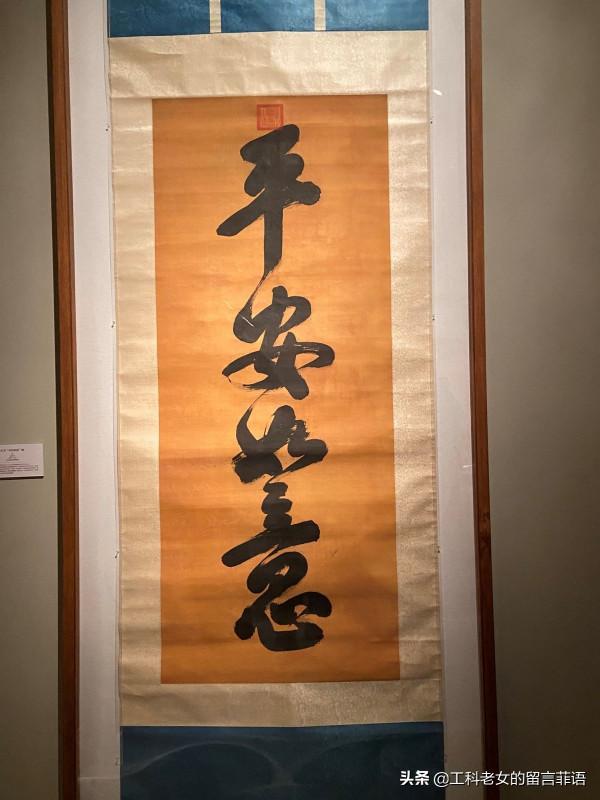 平安如意
头条 @工科老女的留言菲语